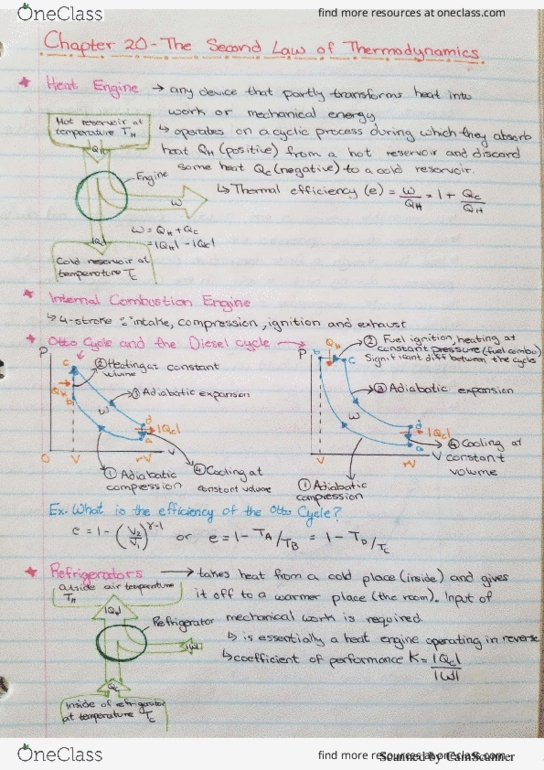 OneClass
find more resources at oneclass.com
Chapter 20 - The Second Law of Thermodynamics
Heat Engine → any device that partly transforms heat into
work or mechanical energy
Hot reservoir at
temperature T_H
↳ operates on a cyclic process during which they absorb
heat Q_H (positive) from a hot reservoir and discard
some heat Q_C (negative) to a cold reservoir.
Engine
↳ Thermal efficiency (e) = W/Q_H = 1 + Q_C/Q_H
W
W = Q_H + Q_C
= |Q_H| - |Q_C|
|Q_C|
Cold reservoir at
temperature T_C
Internal Combustion Engine
↳ 4-stroke : intake, compression, ignition and exhaust
Otto Cycle and the Diesel cycle →
② Fuel ignition, heating at
constant pressure (fuel combo)
Significant diff between the cycle
P
c
② Heating at constant
volume
Q_H
b
③ Adiabatic expansion
W
d
|Q_C|
a
O
V
rV
V
① Adiabatic
compression
④ Cooling at
constant volume
P
Q_H
b
c
③ Adiabatic expansion
W
d
|Q_C|
a
④ Cooling at
constant
volume
V
rV
V
① Adiabatic
compression
Ex. What is the efficiency of the Otto Cycle?
e = 1 - (V₂/V₁)^γ-1 or e = 1 - T_A/T_B = 1 - T_D/T_C
Refrigerators → takes heat from a cold place (inside) and gives
it off to a warmer place (the room). Input of
mechanical work is required
outside air temperature
T_H
|Q_H|
Refrigerator
↳ is essentially a heat engine operating in reverse
↳ coefficient of performance K = |Q_C|/|W|
|W|
Q_C
Inside of refrigerator
at temperature T_C
OneClass
find more resources at oneclass.com
Scanned by CamScanner